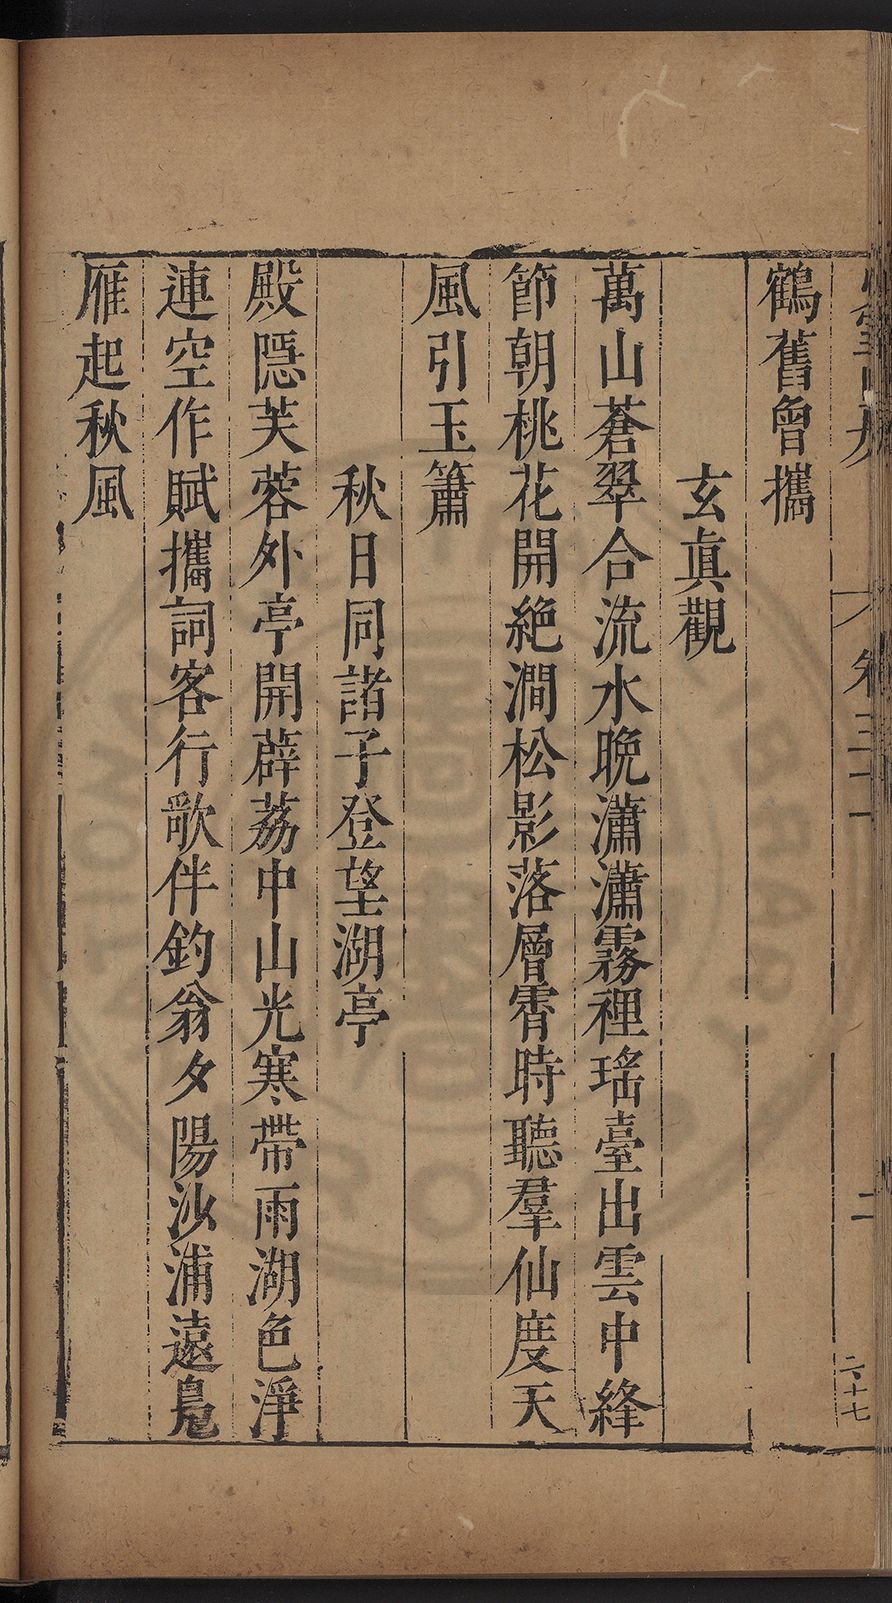 鶴舊曾攜
玄真觀
萬山蒼翠合流水晚瀟瀟霧裡瑤臺出雲中絳
節朝桃花開絶澗松影落層霄時聽羣仙度天
風引玉簫
秋日同諸子登望湖亭
殿隱芙蓉外亭開薜荔中山光寒帶雨湖色淨
連空作賦攜詞客行歌伴釣翁夕陽沙浦遠鳧
雁起秋風
卷三十
二
二十七